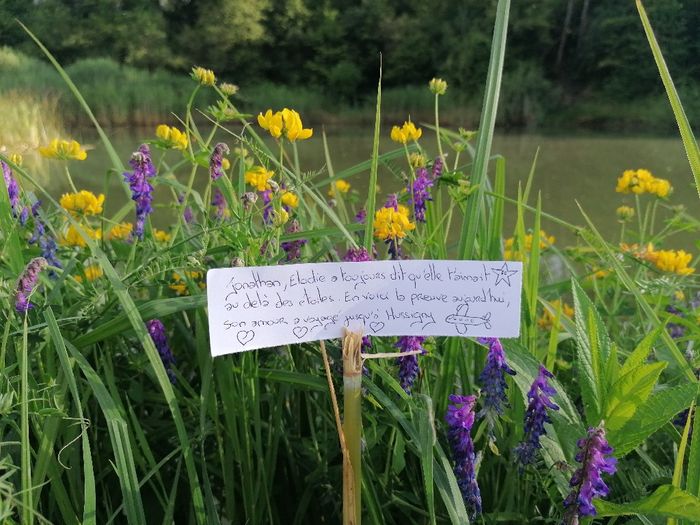 Jonathan, Elodie a toujours dit qu'elle t'aimait
au delà des étoiles. En voici la preuve aujourd'hui,
son amour a voyagé jusqu'à Hussigny